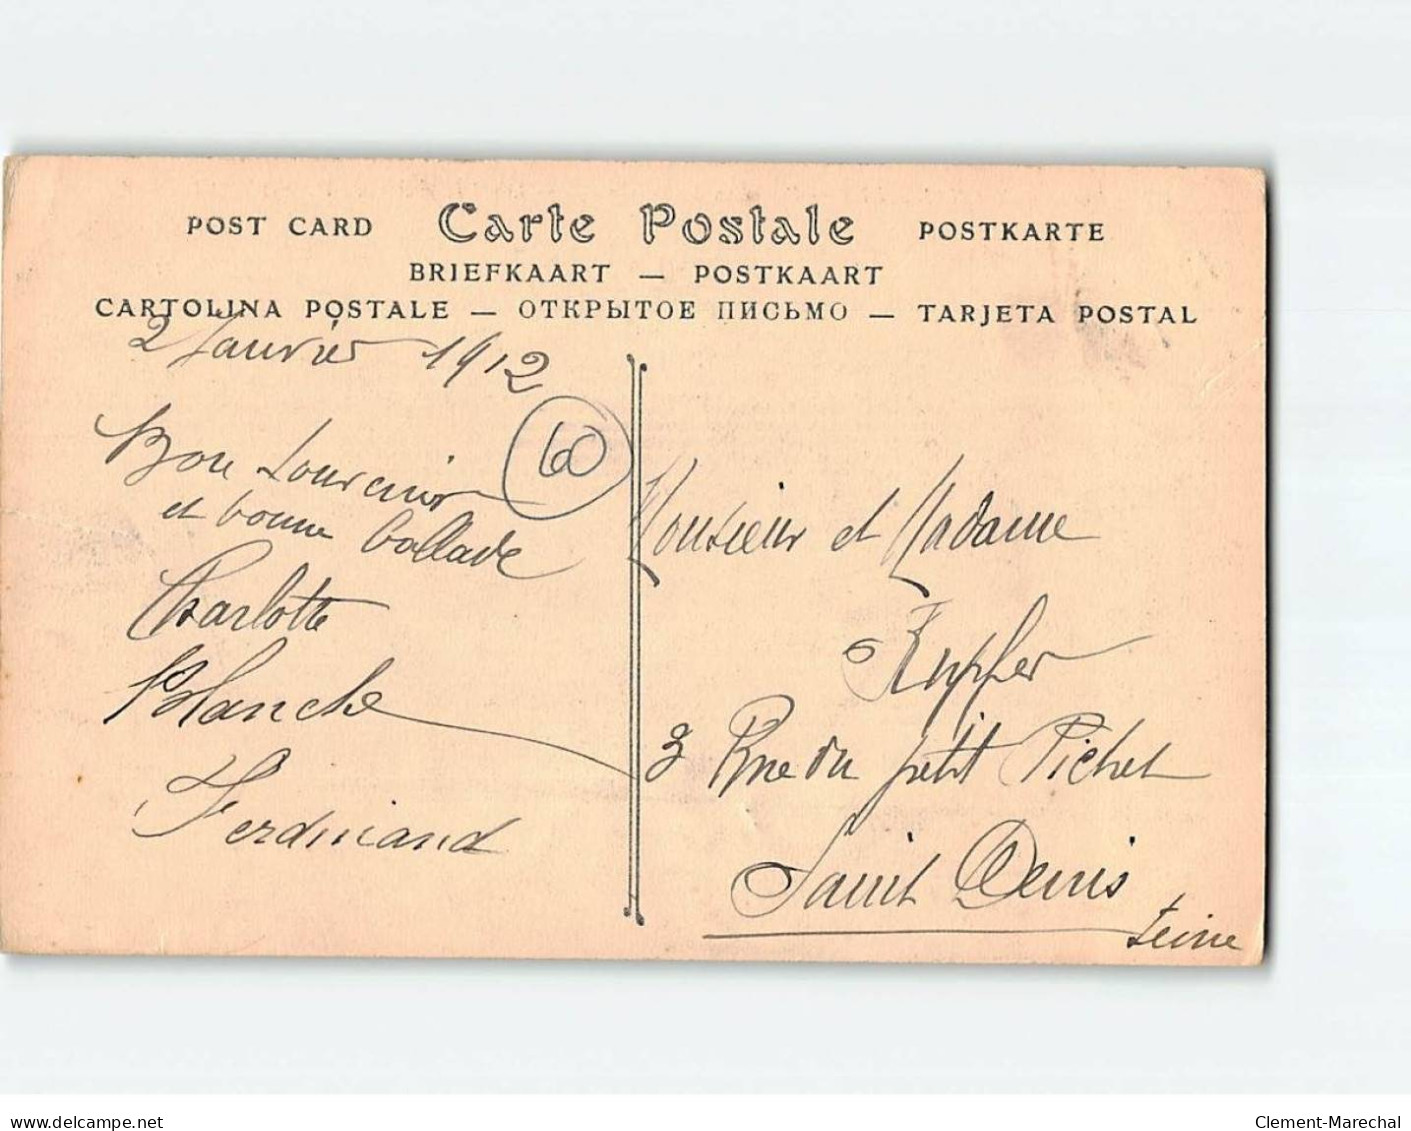 POST CARD Carte Postale POSTKARTE
BRIEFKAART — POSTKAART
CARTOLINA POSTALE — ОТКРЫТОЕ ПИСЬМО — TARJETA POSTAL
2 Janvier 1912
60
Bon Souvenir
et bonne ballade
Charlotte
Blanche
Ferdinand
Monsieur et Madame
Kupfer
3 Rue du petit Pichet
Saint Denis
Seine
www.delcampe.net
Clement-Marechal